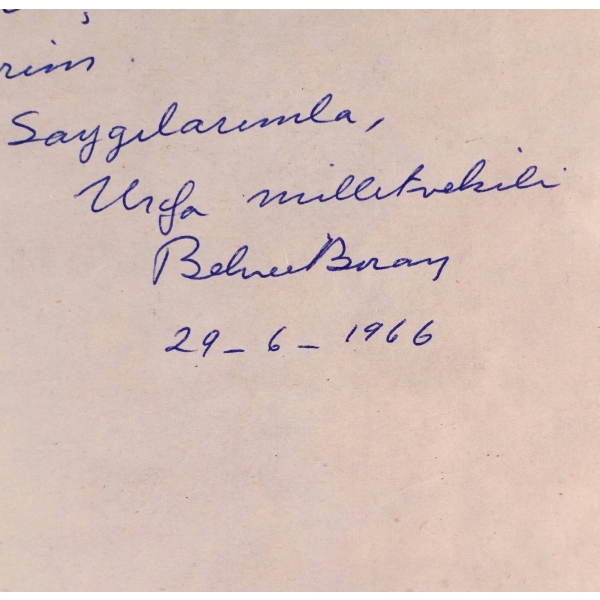 rim.
Saygılarımla,
Urfa milletvekili
Behice Boran
29-6-1966